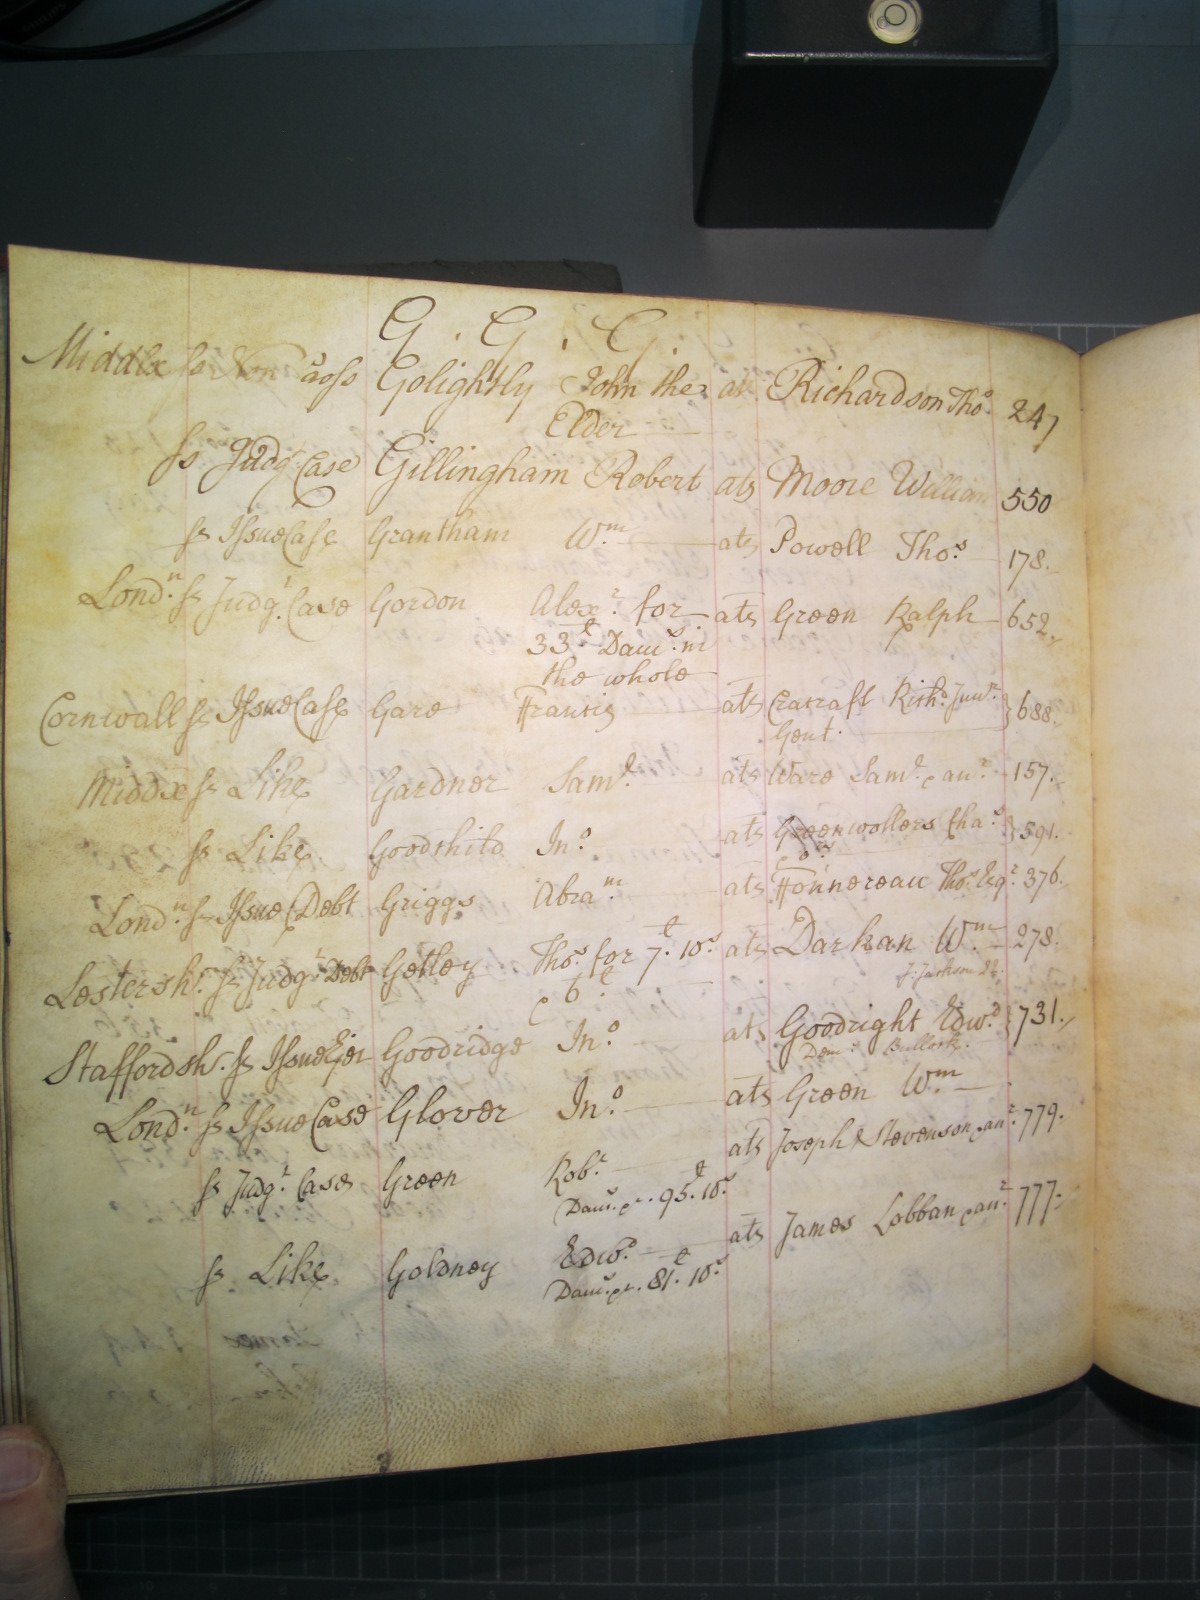 G. G. G.
Middlx ss Non Cass Golightly John the ats Richardson Tho.s 247
Elder
ss Judg.t Case Gillingham Robert ats Moore William 550
ss Issue Case Grantham W.m ats Powell Tho.s 178.
Lond.n ss Judg.t Case Gordon Alex.r for ats Green Ralph 652
33.l Dam.s in
the whole
Cornwall ss Issue Case Gare Francis ats Cracraft Rich.d Jun.r 688
Gent.
Middx ss Like Gardner Sam.l ats Ware Sam.l & an.r 157.
ss Like Goodchild Jn.o ats Greenwollers Cha.s 591.
Lond.n ss Issue Debt Griggs Abra.m ats Fonnereau Tho.s Esq.r 376.
Lestersh.r ss Judg.t Debt Getley Tho.s for 7.l 10.s ats Darkan W.m 278.
& 6.l J: Jackson
Staffordsh.r ss Issue Ejet Goodridge Jn.o ats Goodright Edw.d 731.
Dem.s Bullock.
Lond.n ss Issue Case Glover Jn.o ats Green W.m
ss Judg.t Case Green Rob.t ats Joseph Stevenson & an.r 779.
Dam.s pr. 95.l 10.s
ss Like Goldney Edw.d ats James Lobban & an.r 777.
Dam.s pr. 81.l 10.s